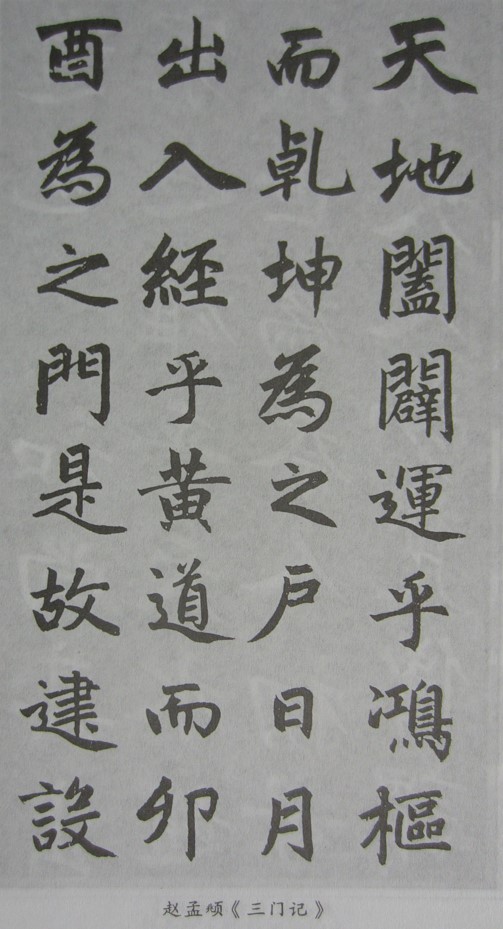 天地闔闢運乎鴻樞
而乹坤為之户日月
出入經乎黄道而卯
酉為之門是故建設
赵孟頫《三门记》